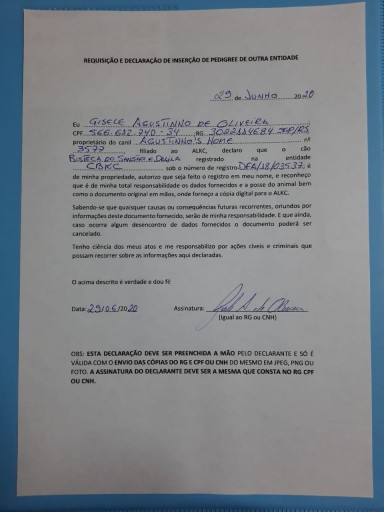 REQUISIÇÃO E DECLARAÇÃO DE INSERÇÃO DE PEDIGREE DE OUTRA ENTIDADE
29 de JUNHO 2020
Eu GISELE AGUSTINHO DE OLIVEIRA
CPF 566.612.740-34 RG 3022114684 SSP/RS
proprietário do canil AGUSTINHO'S HOME nº
3577 filiado ao ALKC, declaro que o cão
BISTECA DO SINGHO E DALILA registrado na entidade
CBKC sob o número de registro DFA/18/03537, é
de minha propriedade, autorizo que seja feito o registro em meu nome, e reconheço
que é de minha total responsabilidade os dados fornecidos e a posse do animal bem
como o documento original em mãos, onde forneço a cópia digital para o ALKC.
Sabendo-se que quaisquer causas ou consequências futuras recorrentes, oriundos por
informações deste documento fornecido, serão de minha responsabilidade. E que ainda,
caso ocorra algum desencontro de dados fornecidos o documento poderá ser
cancelado.
Tenho ciência dos meus atos e me responsabilizo por ações cíveis e criminais que
possam recorrer sobre as informações aqui declaradas.
O acima descrito é verdade e dou fé
Data: 29/06/2020 Assinatura:
(Igual ao RG ou CNH)
OBS: ESTA DECLARAÇÃO DEVE SER PREENCHIDA A MÃO PELO DECLARANTE E SÓ É
VÁLIDA COM O ENVIO DAS CÓPIAS DO RG E CPF OU CNH DO MESMO EM JPEG, PNG OU
FOTO. A ASSINATURA DO DECLARANTE DEVE SER A MESMA QUE CONSTA NO RG CPF
OU CNH.